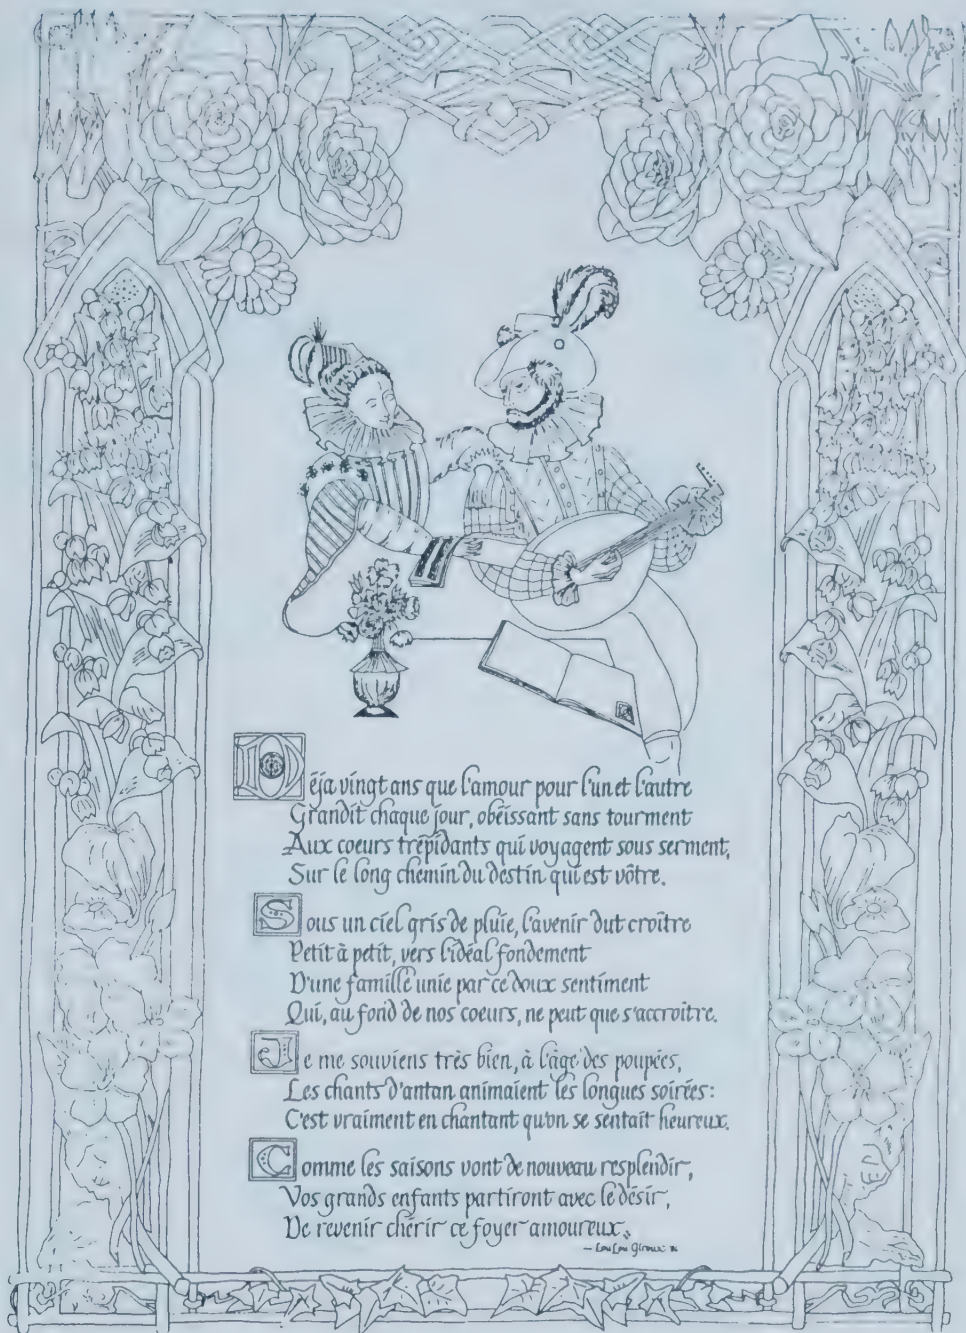 Déja vingt ans que l'amour pour l'un et l'autre
Grandit chaque jour, obéissant sans tourment
Aux coeurs trépidants qui voyagent sous serment,
Sur le long chemin du destin qui est vôtre.
Sous un ciel gris de pluie, l'avenir dut croître
Petit à petit, vers l'idéal fondement
D'une famille unie par ce doux sentiment
Qui, au fond de nos coeurs, ne peut que s'accroître.
Je me souviens très bien, à l'âge des poupées,
Les chants d'antan animaient les longues soirées:
C'est vraiment en chantant qu'on se sentait heureux.
Comme les saisons vont de nouveau resplendir,
Vos grands enfants partiront avec le désir,
De revenir chérir ce foyer amoureux.
— LouLou Giroux